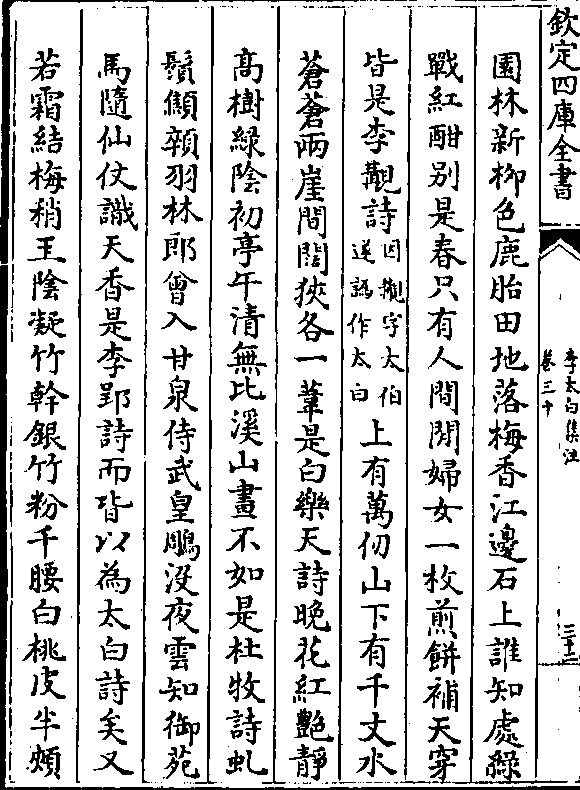 欽定四庫全書
李太白集注
卷三十
三十二
園林新栁色鹿胎田地落梅香江邊石上誰知處緑
戰紅酣别是春只有人間閒婦女一枚煎餅補天穿
皆是李覯詩因覯字太伯遂譌作太白上有萬仞山下有千丈水
蒼蒼兩崖間闊狹各一葦是白樂天詩晚花紅艶靜
高樹緑陰初亭午清無比溪山畫不如是杜牧詩虬
鬚顑顙羽林郎曾入甘泉侍武皇鵰没夜雲知御苑
馬隨仙仗識天香是李郢詩而皆以為太白詩矣又
若霜結梅稍玉陰凝竹幹銀竹粉千腰白桃皮半頰